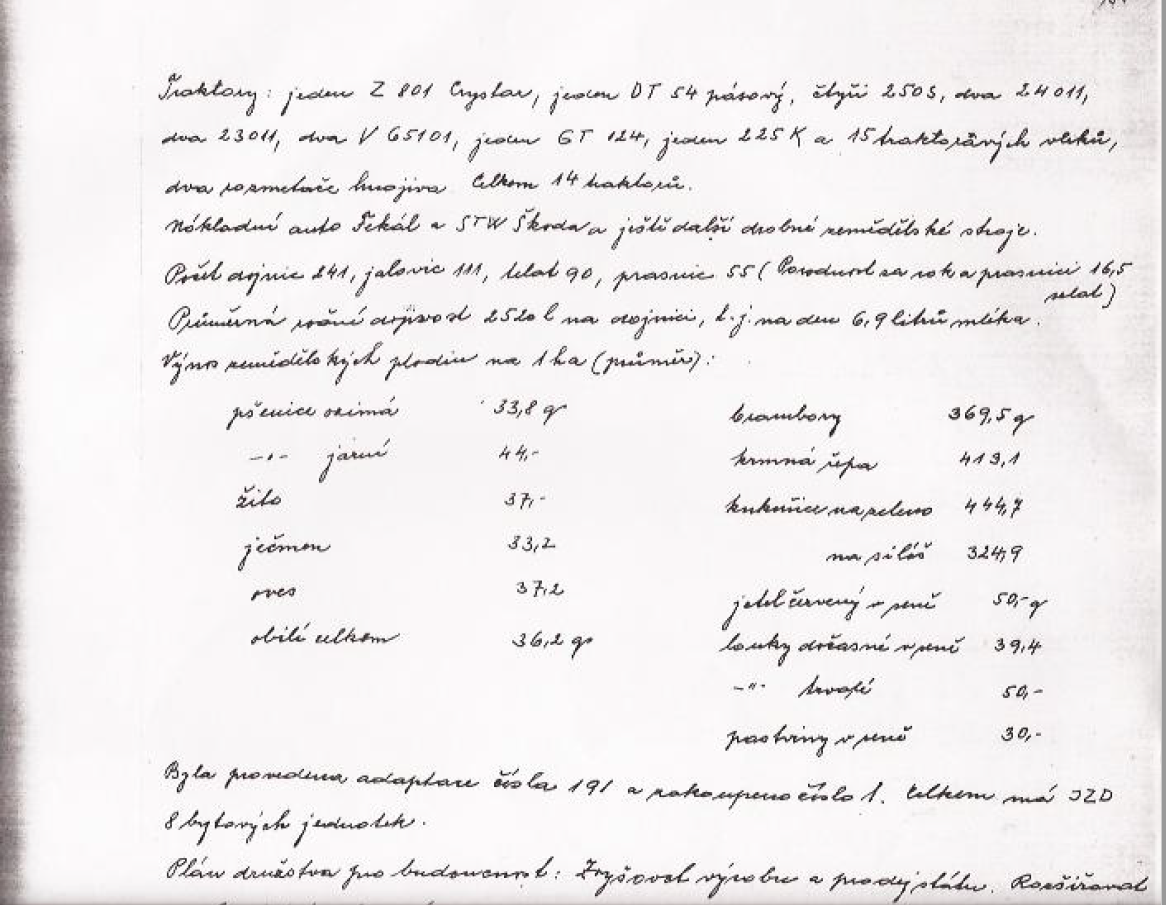 Traktory: jeden Z 801 Crystar, jeden DT 54 pásový, čtyři 250S, dva 24011,
dva 23011, dva V 65101, jeden GT 124, jeden 225 K a 15 traktorávých vleků,
dva rozmetače hnojiva Celkem 14 traktorů.
Nákladní auto Fekál a STW Škoda a ještě další drobné zemědělské stroje.
Počet dojnic 241, jalovic 111, telat 90, prasnic 55 (Porodnost za rok a prasnici 16,5
selat)
Průměrná roční dojivost 2520 l na dojnici, t.j. na den 6,9 litrů mléka.
Výnos zemědělských plodin na 1 ha (průměr):
pšenice ozimá 33,8 q brambory 369,5 q
-"- jarní 44,- krmná řepa 413,1
žito 37,- kukuřice na zeleno 444,7
ječmen 33,2 na siláš 324,9
oves 37,2 jetel červený v seně 50,- q
obilí celkem 36,2 q louky dočasné v seně 39,4
-"- trvalé 50,-
pastviny v seně 30,-
Byla provedena adaptace čísla 191 a zakoupeno číslo 1. Celkem má JZD
8 bytových jednotek.
Plán družstva pro budoucnost: Zvyšovat výrobu a prodej státu. Rozšiřovat